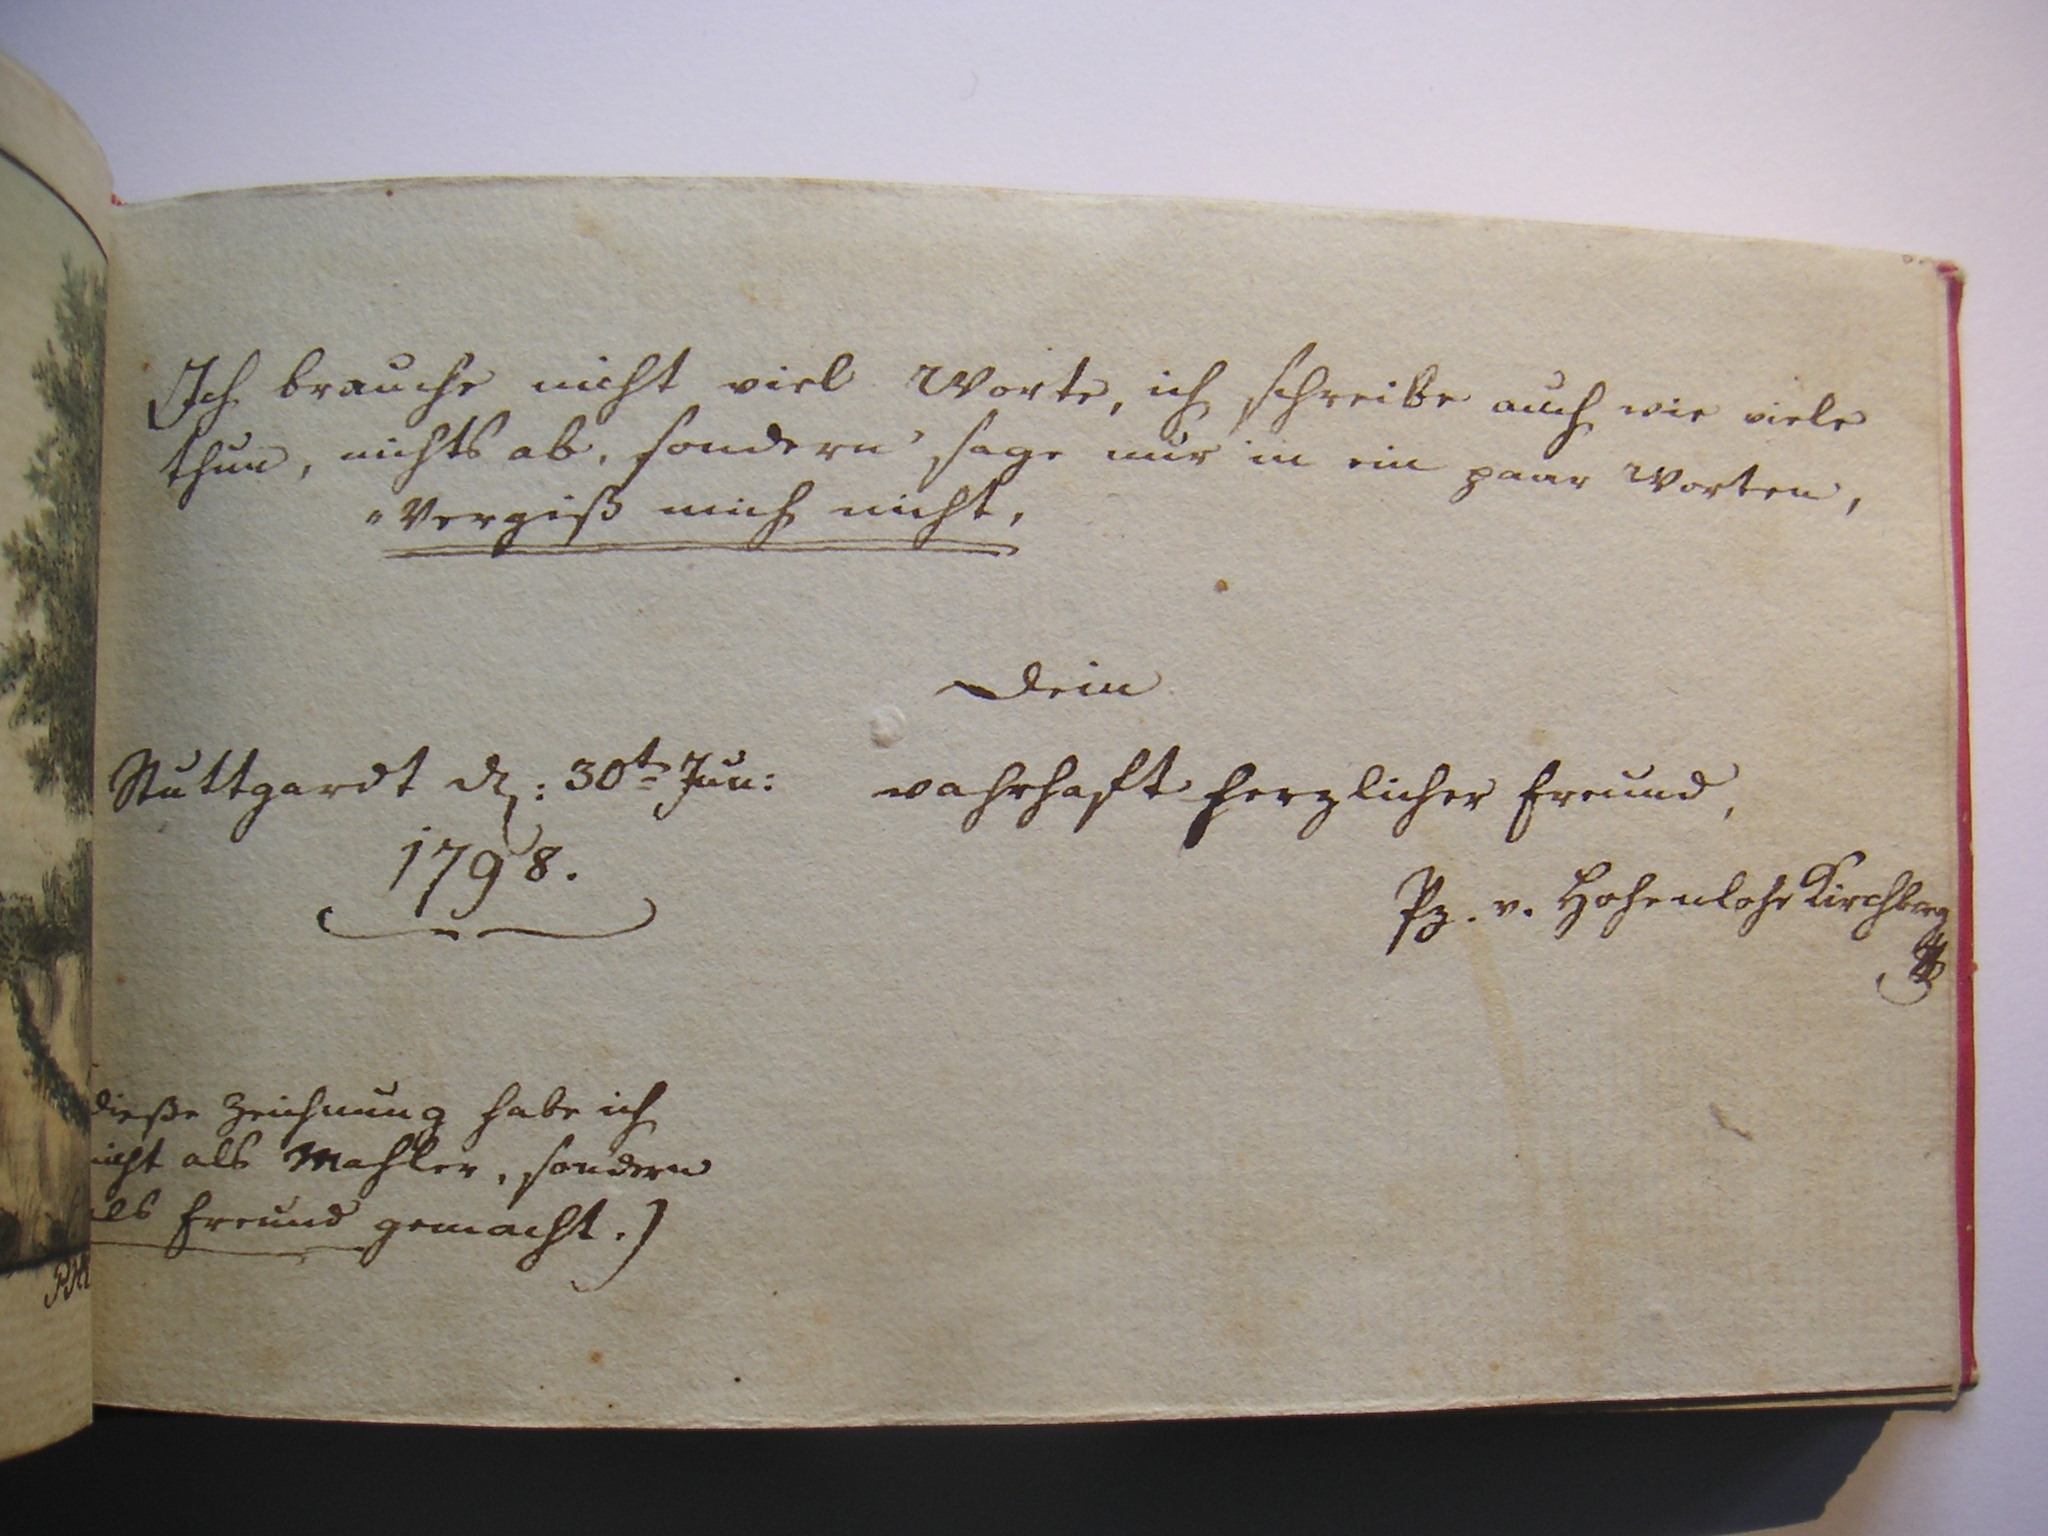 Ich brauche nicht viel Worte, ich schreibe auch wie viele
thun, nichts ab, sondern sage nur in ein paar Worten,
"Vergiß mich nicht,
Dein
Stuttgardt d: 30t Jun:
1798.
wahrhaft herzlicher Freund,
Pz. v. Hohenlohe Kirchberg
dieße Zeichnung habe ich
nicht als Mahler, sondern
als Freund gemacht.)